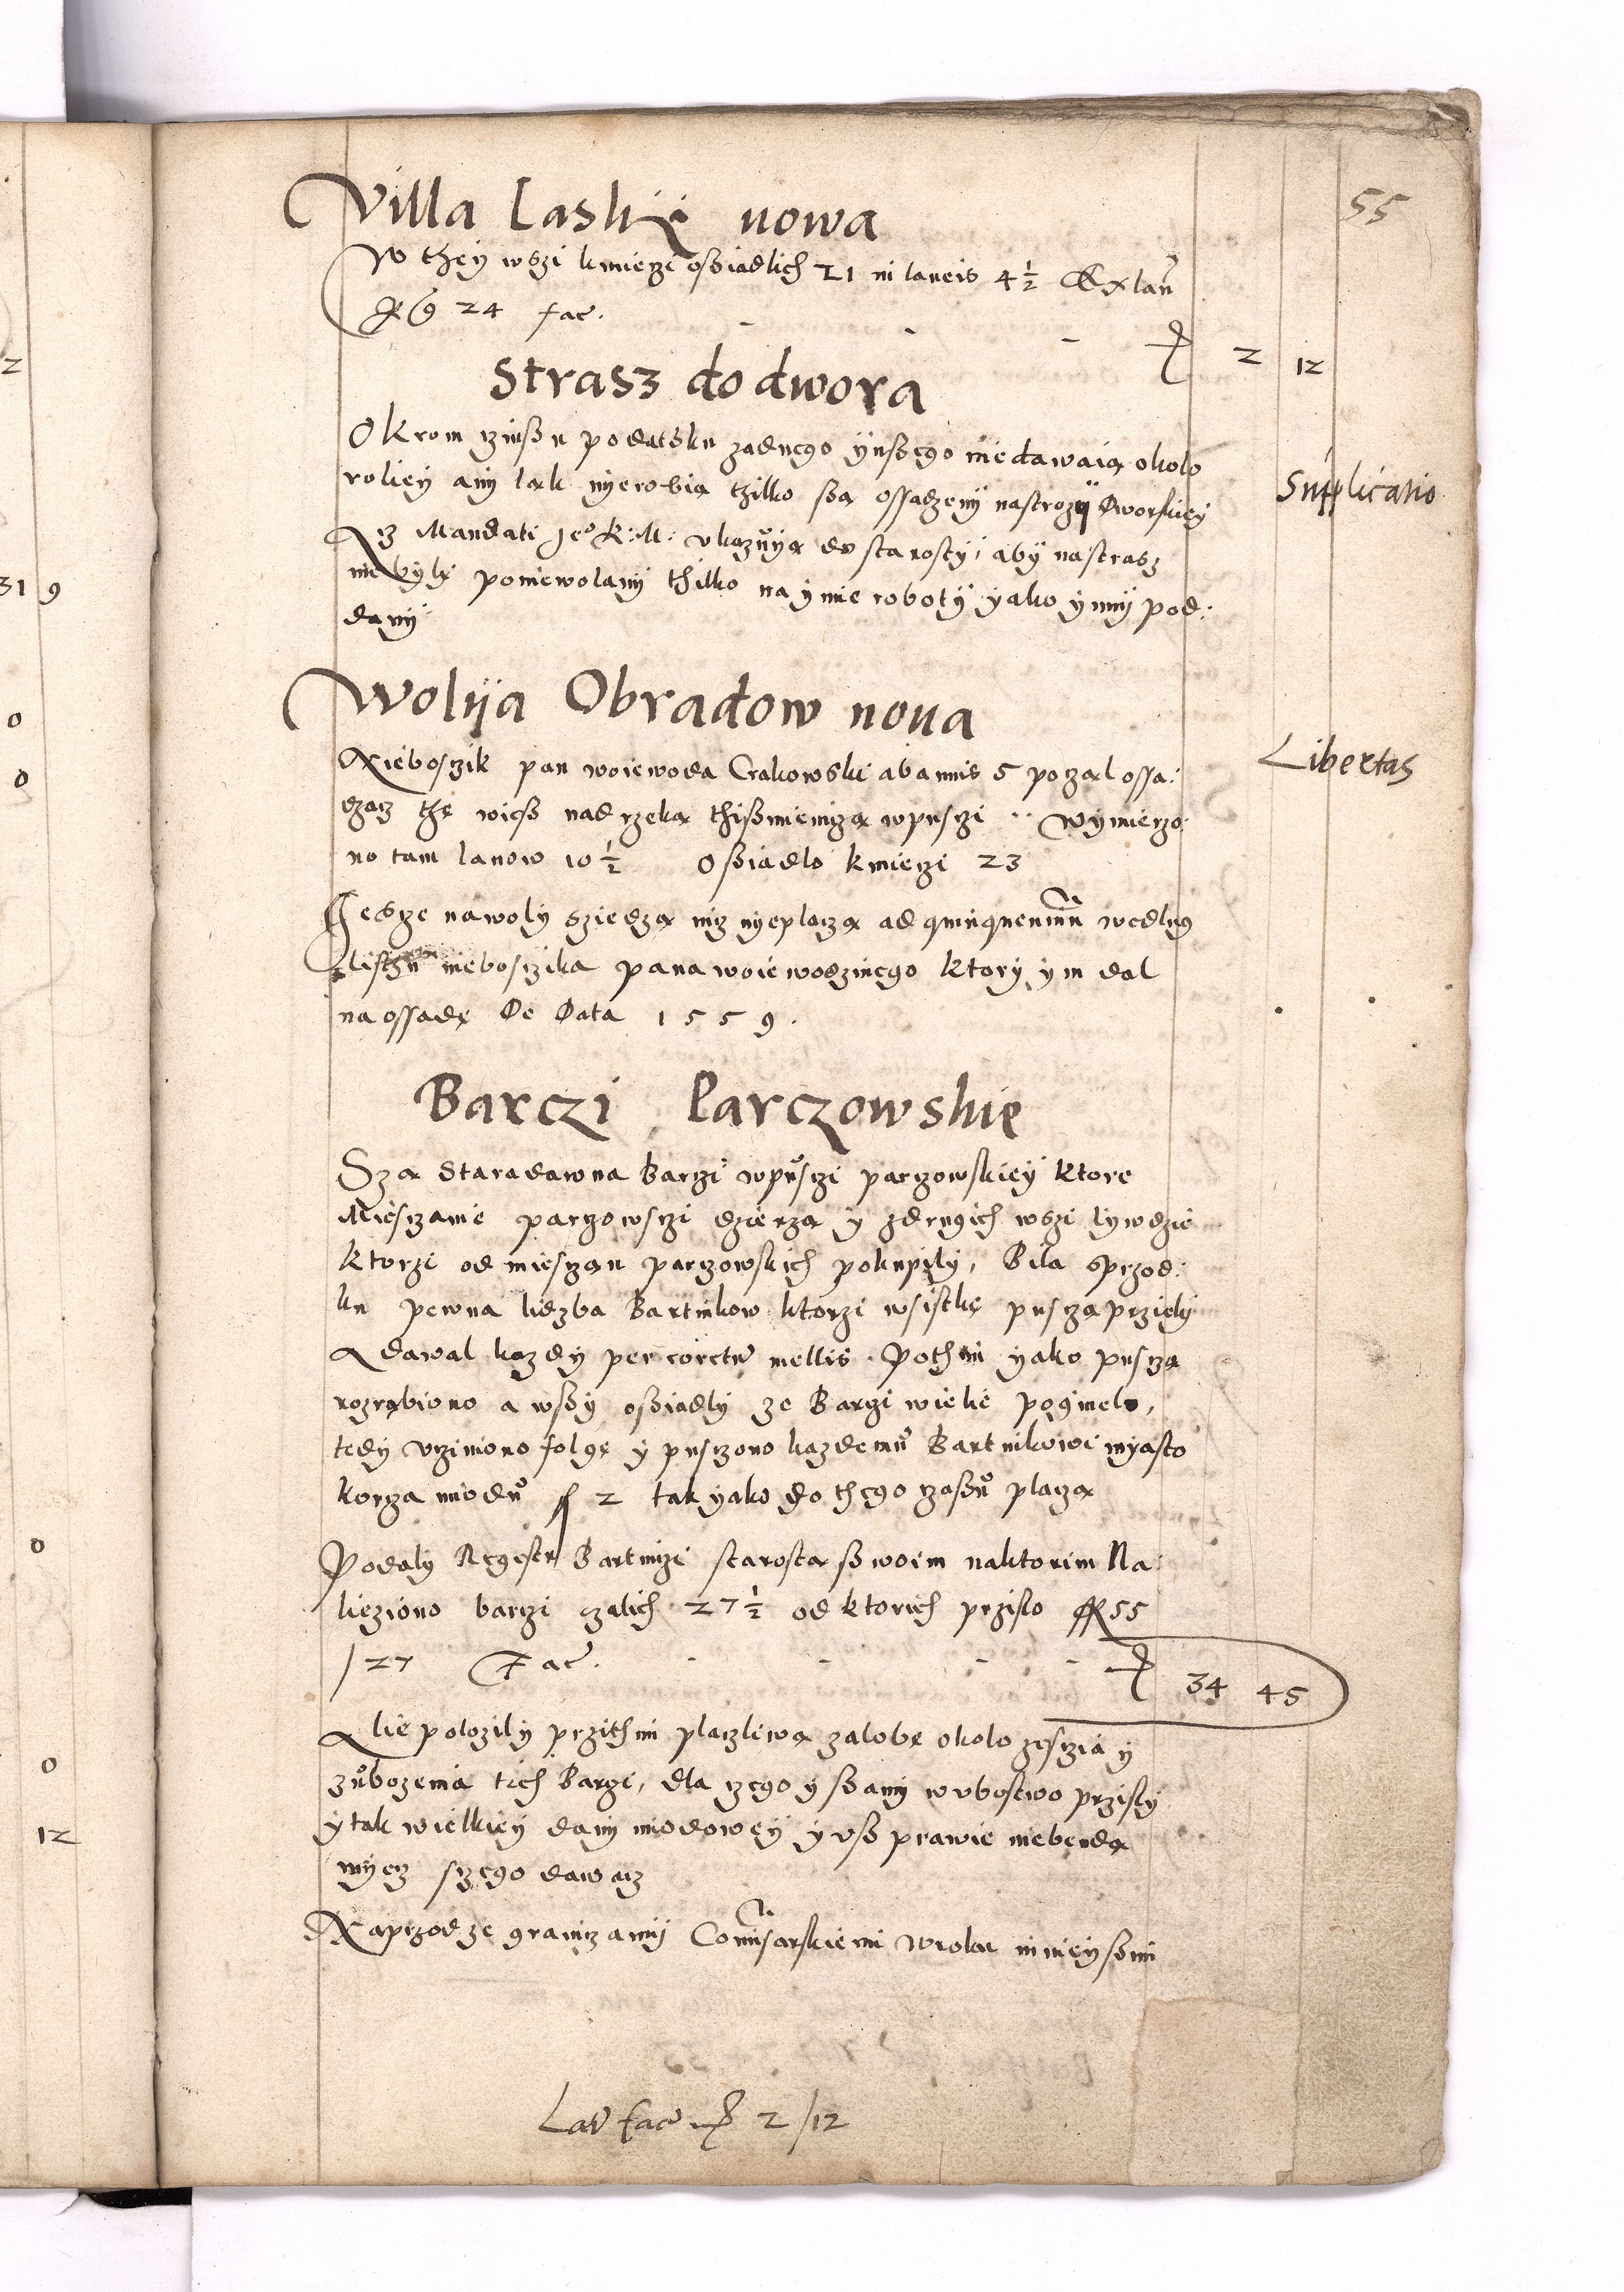 55
Villa Laski nowa
W they wszi kmieczi ossiadlich 21 in laneis 4 1/2 Ex lan
g 24 fac. - - - 2 12
Strasz do dwora
Okrom czinszu podatsku zadnego ynszego niedawaią około
roliey any ląk nyerobią tzilko szą ossadzeny nastrozy Dworskiey
Supplicatio
Iz Mandati Jeº K: M: ukazuyą do starosty, aby nastrasz
niebyly poniewolany thilko na ynne roboty yako ynny pod:
dany
Wolya Obradow nova
Nieboszik pan woiewoda Crakowski ab annis 5 poczal ossa:
Libertas
dzacz thę wiesz nad rzeką thiszmieniczą wpusczi .. wymierzo
no tam lanow 10 1/2 Osziadlo kmieczi 23
Jescze nawoly sziedzą nicz nyeplaczą ad quinquenium wedlug
listhu nieboszika pana woiewodzinego ktory ym dal
na ossadę De Data 1559.
Barczi Parczowskie
Szą staradawna Barczi wpusczi parczowskiey ktore
Miesczanie parczowsczi dzierzą y zdrugich wszi lywdzie
ktorzi od miesczan parczowskich pokupily, Bila sprzod:
ku pewna liczba Bartnikow ktorzi wsistkę pusczą przięly
A dawal kazdy per corctum mellis. Pothim yako pusczą
rozrąbiono a wszy osziadly ze Barczi wielie poginelo,
tedy ucziniono folgę y pusczono kazdemu Bartnikowi myasto
korcza miodu 2 tak yako do thego czaszu placzą
Podaly Regestr Bartniczi starosta szwoim naktorim Na:
liczono barczi czalich 27 1/2 od ktorich przislo 55
/27 Fac. - - - - 34 45
Alie polozily przithim placzliwą zalobę okolo zesczia y
zubozenia tich Barczi, dla czego y szamy wubostwo przisly
y tak wielkiey dany miodowey y usz prawie niebendą
myecz sczego dawacz
Naprzod ze graniczamy Comisarskiemi wrolac mnieyszimi
Lat fac 2/12
2
31 9
0
0
0
0
12